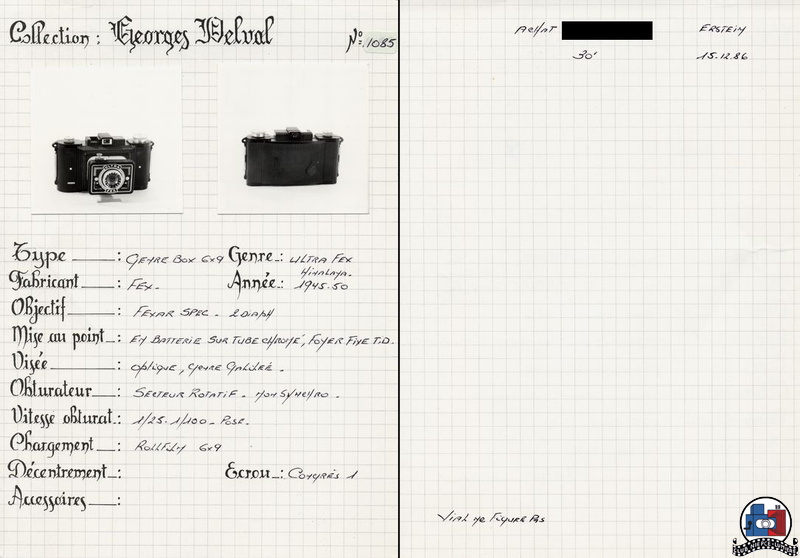 Collection : Georges Delval
Nº 1085
Type : GENRE BOX 6x9 Genre : ULTRA FEX
HIMALAYA.
Fabricant : FEX. Année : 1945.50
Objectif : FEXAR SPEC. 2 DIAPH
Mise au point : EN BATTERIE SUR TUBE CHROMÉ, FOYER FIXE T.D.
Visée : OPTIQUE, GENRE GALILÉE.
Obturateur : SECTEUR ROTATIF. NON SYNCHRO.
Vitesse obturat. : 1/25. 1/100. POSE.
Chargement : ROLLFILM 6x9
Décentrement : Ecrou : CONGRÈS 1
Accessoires :
ACHAT ERSTEIN
30' 15.12.86
VIAL NE FIGURE PAS